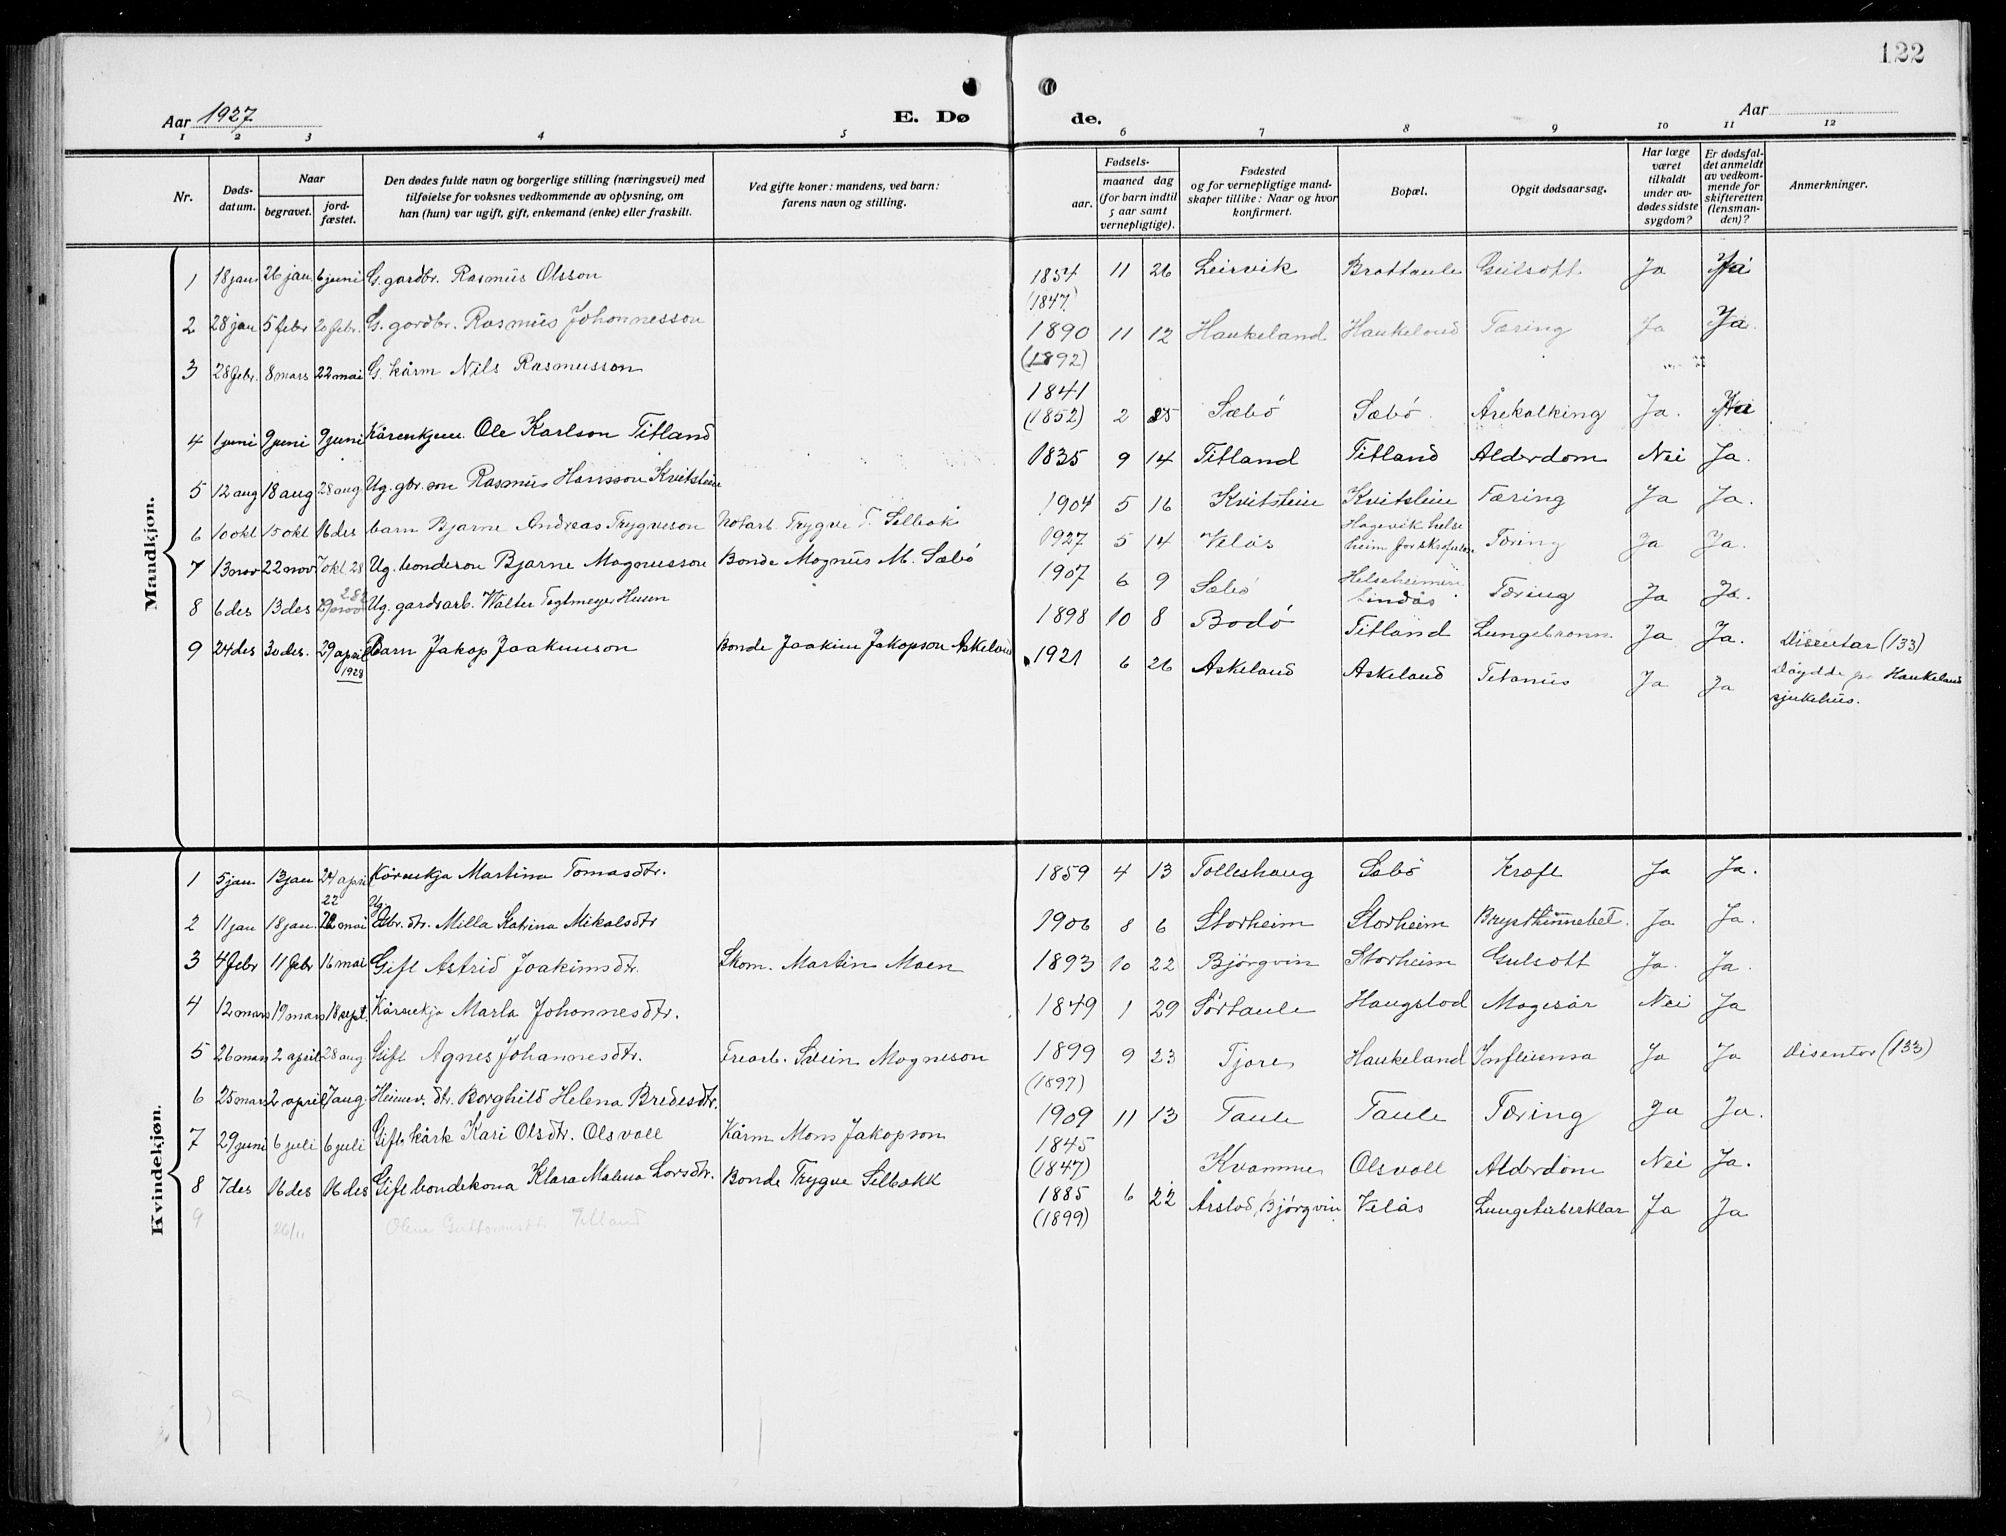 122
Aar 1927
E. Dø
de.
Aar
1 2 3 4 5 6 7 8 9 10 11 12
Nr.
Døds-
datum.
Naar
begravet.
jord-
fæstet.
Den dødes fulde navn og borgerlige stilling (næringsvei) med
tilføielse for voksnes vedkommende av oplysning, om
han (hun) var ugift, gift, enkemand (enke) eller fraskilt.
Ved gifte koner: mandens, ved barn:
farens navn og stilling.
Fødsels-
aar.
maaned dag
(for barn indtil
5 aar samt
vernepligtige).
Fødested
og for vernepligtige mand-
skaper tillike: Naar og hvor
konfirmert.
Bopæl.
Opgit dødsaarsag.
Har læge
været
tilkaldt
under av-
dødes sidste
sygdom?
Er dødsfal-
det anmeldt
av vedkom-
mende for
skifteretten
(lensman-
den)?
Anmerkninger.
Mandkjøn.
1 18 jan 26 jan 6 juni G. gardbr. Rasmus Olsson 1854 11 26 Leirvik Brattaule Gulsott Ja
(1847)
2 28 jan 5 febr 20 febr. G. gardbr. Rasmus Johannesson 1890 11 12 Haukeland Haukeland Tæring Ja Ja.
(1892)
3 28 febr. 8 mars 22 mai G. kårm Nils Rasmusson 1841
(1852) 2 25 Sæbø Sæbø. Årekalking Ja.
4 1 juni 9 juni 9 juni Kårenkjem. Ole Karlson Titland 1835 9 14 Titland Titland Alderdom Nei Ja.
5 12 aug 18 aug 28 aug. Ug. gbr. son Rasmus Hansson Kvitstein 1904 5 16 Kvitstein Kvitstein Tæring Ja Ja.
6 10 okt 15 okt 16 des barn Bjarne Andreas Trygveson Notarb. Trygve T. Selbak 1927 5 14 Velås Hagevik helse
heim for skrofuløse Tæring Ja Ja.
7 13 nov 22 nov 7 okt 28 Ug. bondeson Bjarne Magnusson Bonde Magnus M. Sæbø 1907 6 9 Sæbø Helseheimen
Lindås Tæring Ja Ja.
8 6 des 13 des 29 nov 28 Ug. gardsarb. Walter Tegtmeyer Huun 1898 10 8 Bodø Titland Lungebronn. Ja Ja. Disentar (133)
9 24 des 30 des. 29 april 1928 Barn Jakop Joakimson Bonde Joakim Jakopson Askeland 1921 6 26 Askeland Askeland Tetanus Ja Ja Døydde på Haukeland
sjukehus.
Kvindekjøn.
1 5 jan 13 jan 24 april Kårenkja Martina Tomasdtr. 1859 4 13 Tolleshaug Sæbø Kræft Ja Ja.
2 11 jan 18 jan. 22 mai Ug. Gbr. dtr. Milla Katrina Mikalsdtr 1906 8 6 Storheim Storheim Brysthinnebet. Ja Ja.
3 4 febr 11 febr 16 mai Gift Astrid Joakimsdtr. Skom. Martin Moen 1893 10 22 Bjørgvin Storheim Gulsott Ja. Ja.
4 12 mars 19 mars 18 sept. Kårenkja Marta Johannesdtr. 1849 1 29 Sørtaule Haugstad Magesår Nei Ja
5 26 mars 2 april 28 aug. Gift Agnes Johannesdtr. Trearb. Svein Magneson 1899 9 23 Tjore Haukeland Influensa Ja Ja Disentar (133)
(1897)
6 25 mars 2 april 7 aug. Heimev. dtr. Borghild Helena Bredesdtr. 1909 11 13 Taule Taule Tæring Ja Ja.
7 29 juni 6 juli 6 juli Gift kårk Kari Olsdtr. Olsvoll Kårm Mons Jakopson 1845
(1847) Kvamme Olsvoll Alderdom Nei Ja.
8 7 des 16 des 16 des Gift bondekona Klara Malena Larsdtr. Bonde Trygve Selbakk 1885 6 22 Årstad, Bjørgvin Velås Lungetuberklar Ja Ja
(1899)
9 26/11 Olena Guttormsdtr Titland